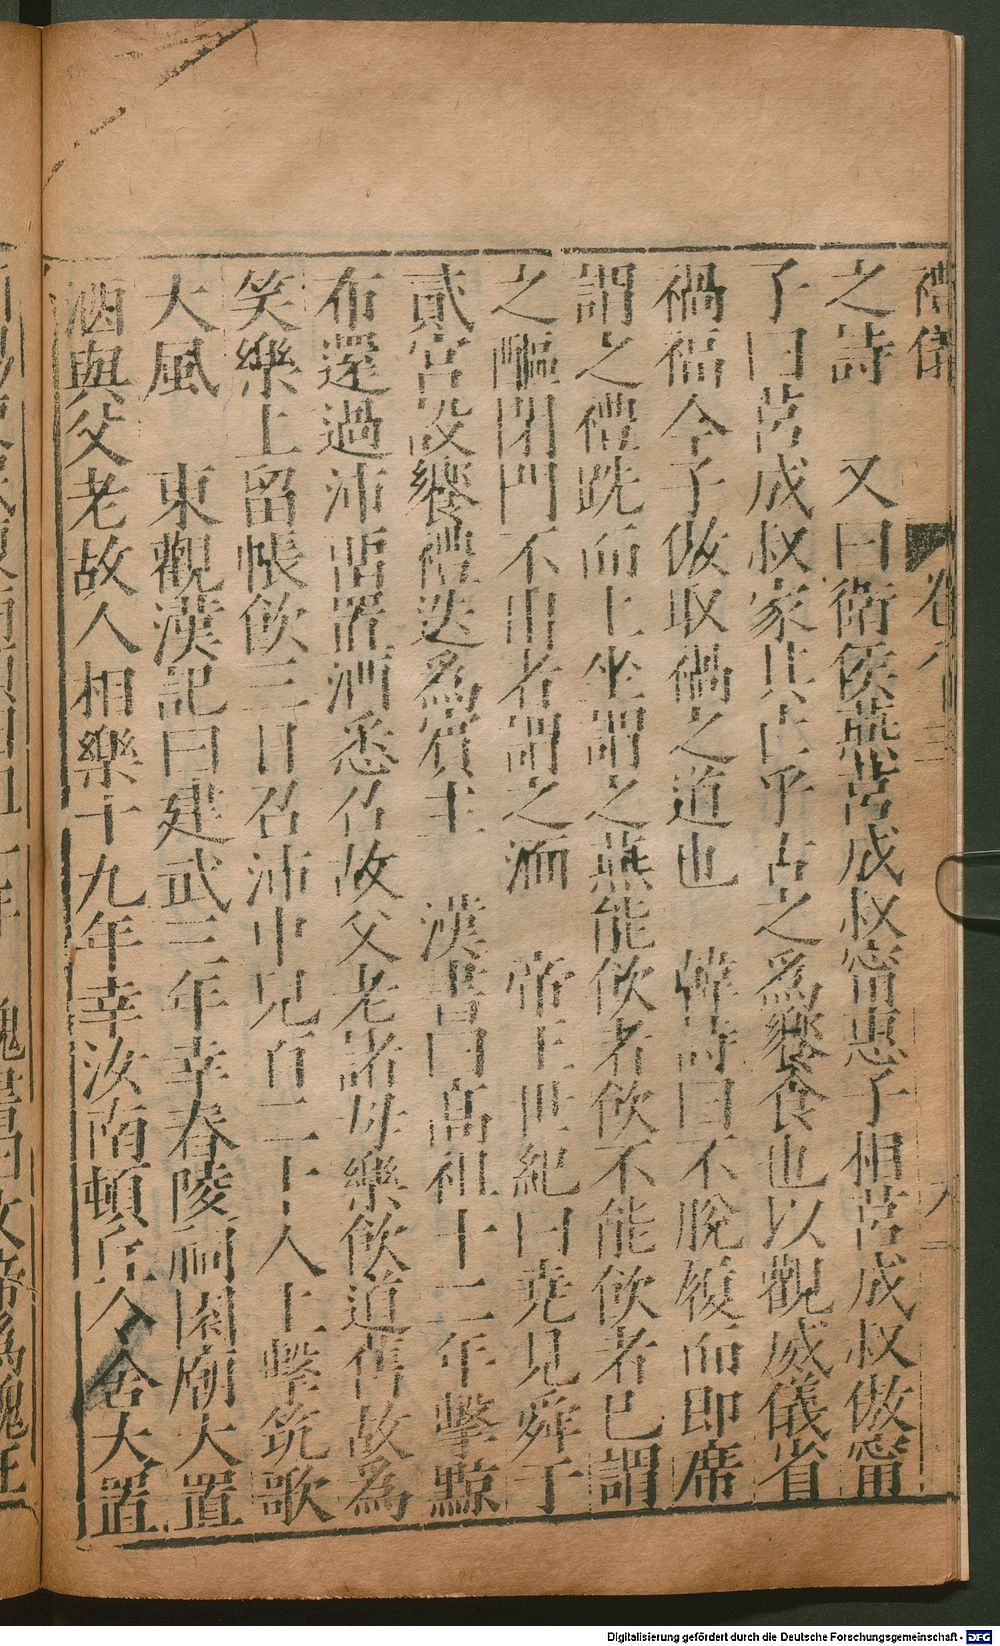 禮儀 卷八
之詩 又曰衛侯燕苦成叔甯惠子相苦成叔傲甯
子曰苦成叔家其亡乎古之爲饗食也以觀威儀省
禍福今子傲取禍之道也 韓詩曰不脫屨而即席
謂之禮跣而上坐謂之燕能飲者飲不能飲者已謂
之醧閉門不出者謂之湎 帝王世紀曰堯見舜于
貳宮設饗禮迭爲賓主 漢書曰高祖十二年擊黥
布還過沛留置酒悉召故父老諸母樂飲道舊故爲
笑樂上留帳飲三日召沛中兒百二十人上擊筑歌
大風 東觀漢記曰建武三年幸舂陵祠園廟大置
酒與父老故人相樂十九年幸汝南頓丘令舍大置
Digitalisierung gefördert durch die Deutsche Forschungsgemeinschaft - DFG